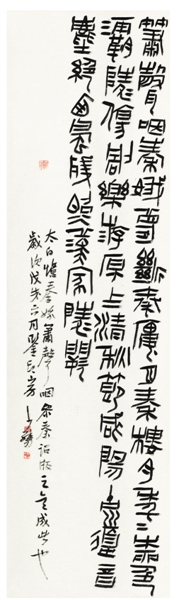 簫聲咽秦娥夢斷秦樓月秦樓月年二柳色
灞陵傷別樂游原上清秋節咸陽古道音
塵絕西風殘照漢家陵闕
太白憶秦娥簫聲咽參秦詔版之意成此也
歲次戊戌六月